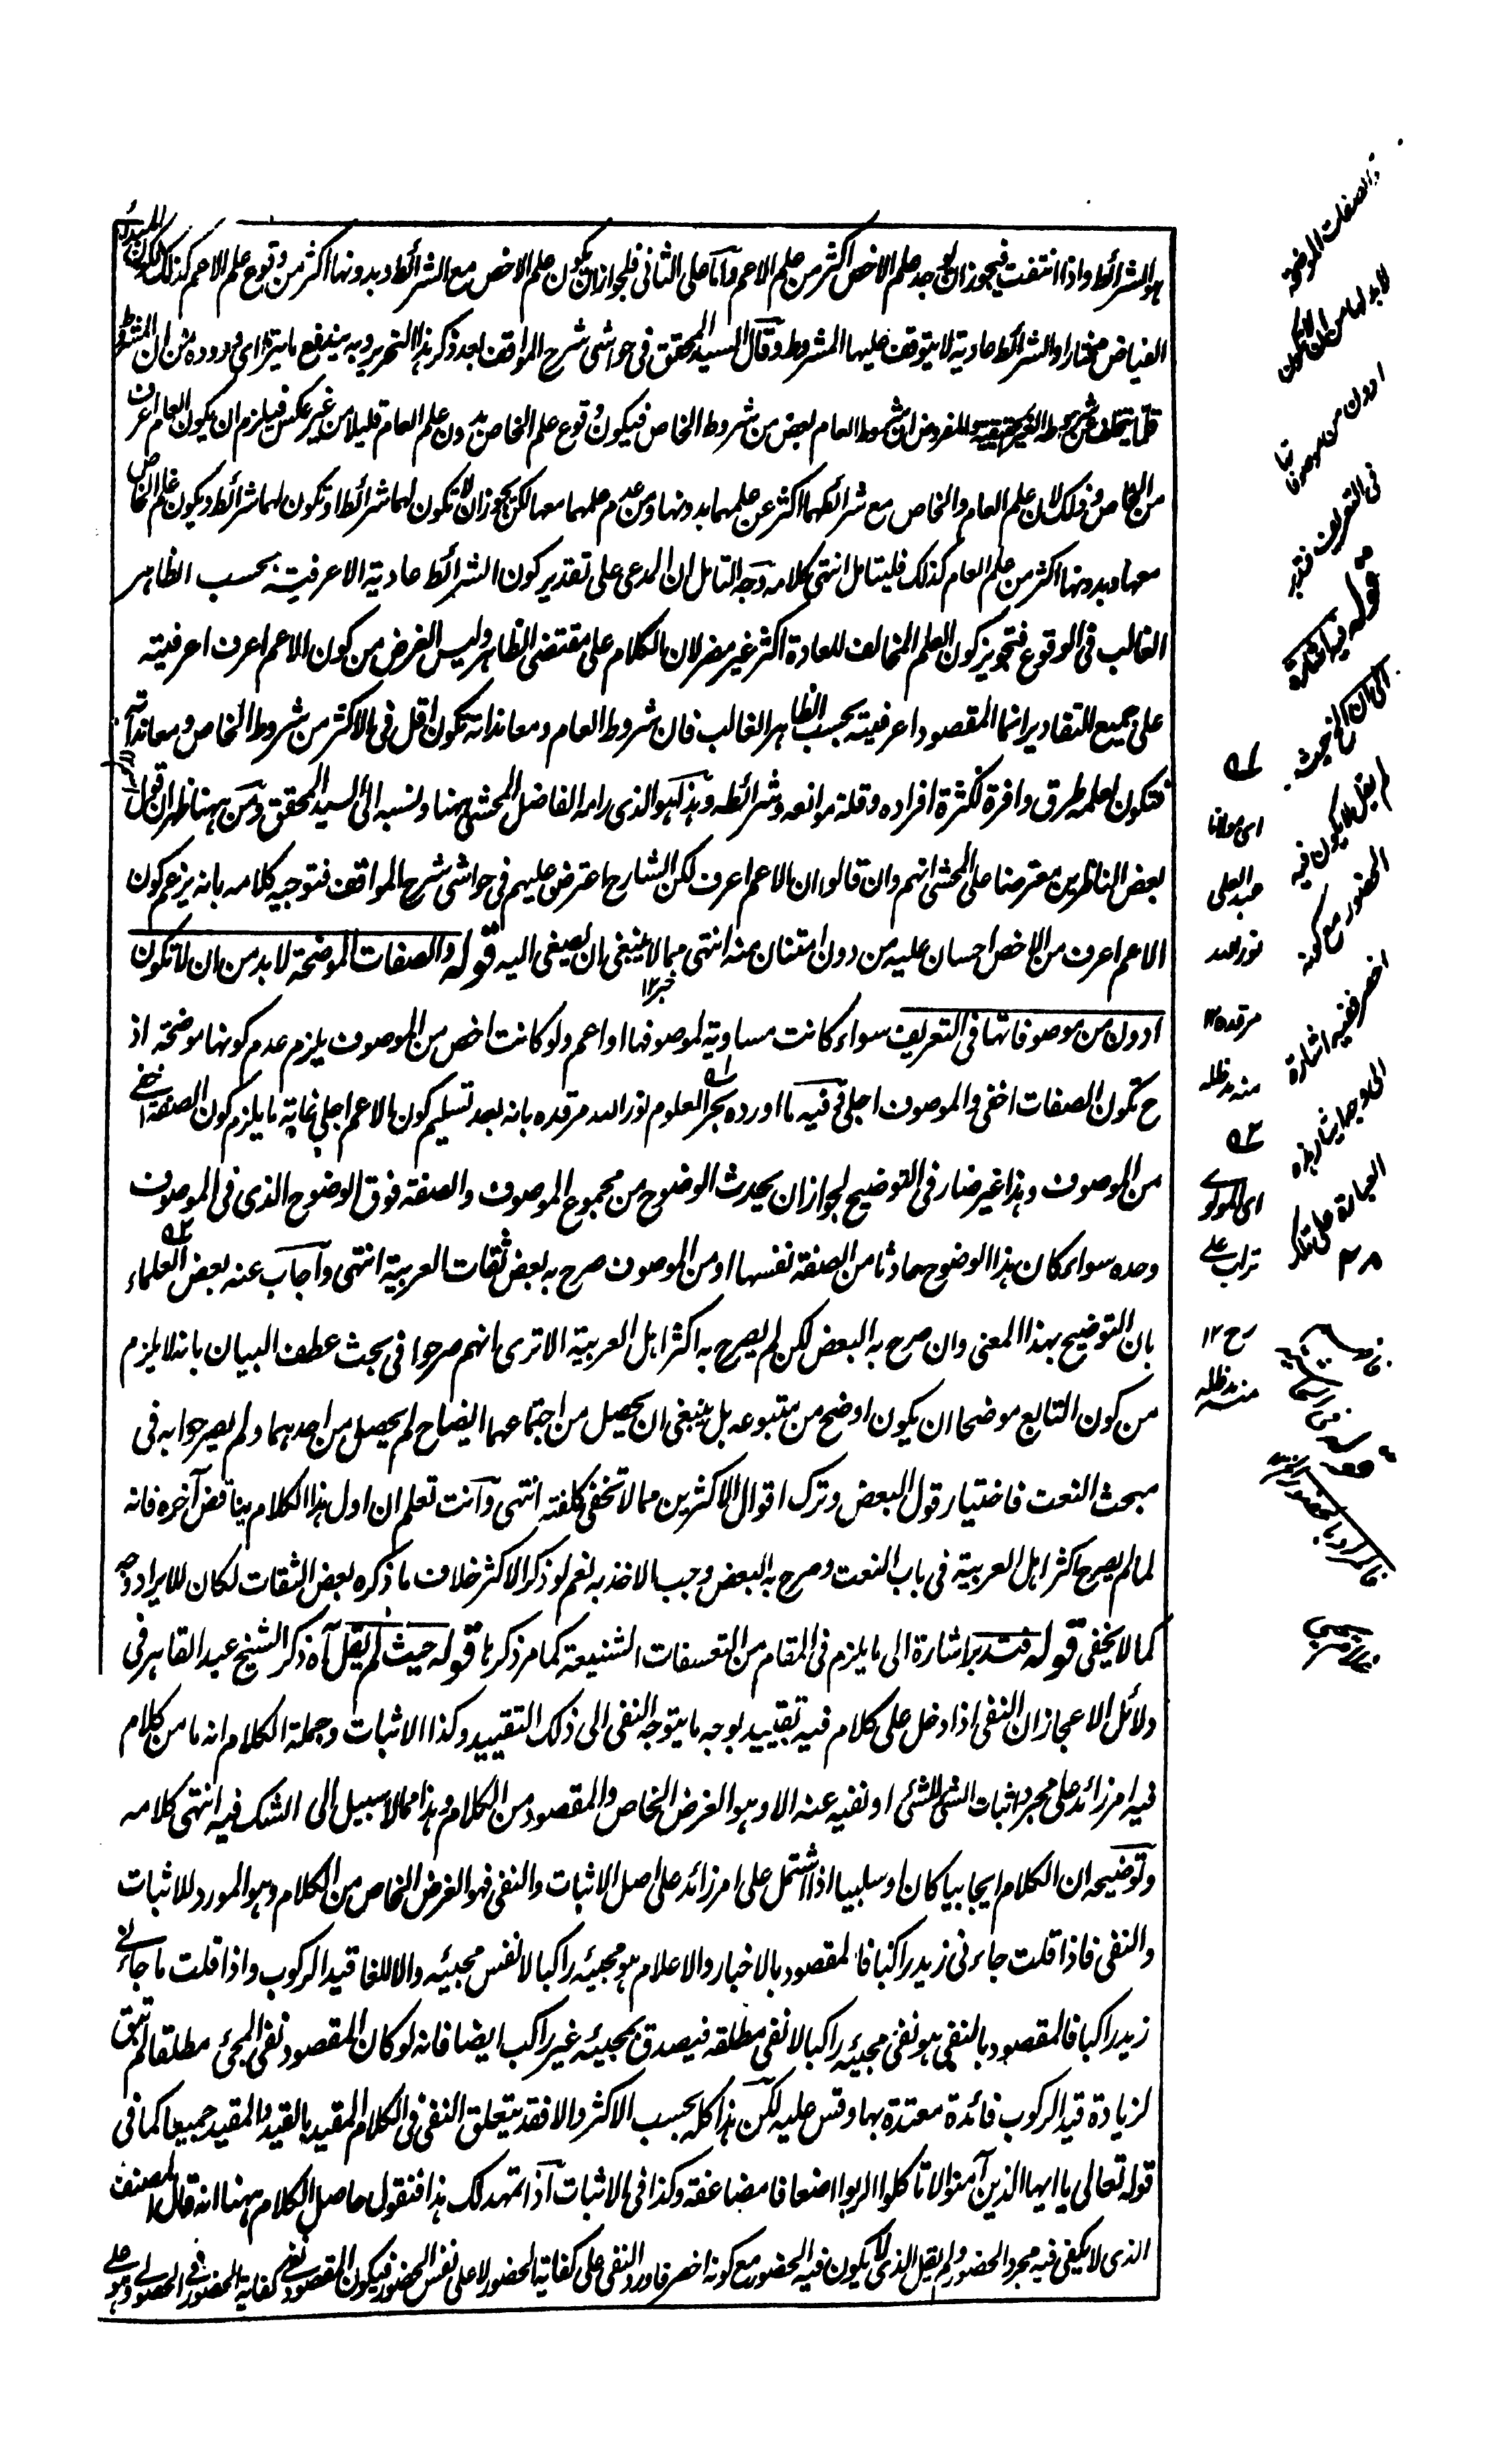 هو الشرائط واذا انتفت فيجوز ان يوجد علم الاخص اكثر من علم الاعم واما على الثانى فلجواز ان يكون علم الاخص مع الشرائط وبدونها اكثر من وقوع علم الاعم كذلك لكون المبدأ
الفياض مختارا والشرائط عادية لا يتوقف عليها المشروط وقال السيد المحقق فى حواشى شرح المواقف بعد ذكر هذا التحرير وبه يندفع ما يتراأى وروده من ان المشروط
قلما يتخلف عن شروطه الغير الحقيقية والمفروض ان شروط العام بعض من شروط الخاص فيكون وقوع علم الخاص بدون علم العام قليلا من غير عكس فيلزم ان يكون العام اعرف
من الخاص وذلك لان علم العام والخاص مع شرائطهما اكثر عن علمهما بدونها ومن عدم علمهما معها لكن يجوز ان لا تكون لهما شرائط او تكون لهما شرائط ويكون علم الخاص
معها وبدونها اكثر من علم العام كذلك فليتامل انتهى كلامه وجه التامل ان المدعى على تقدير كون الشرائط عادية الاعرفية بحسب الظاهر
الغالب فى الوقوع فتجويز كون العلم المخالف للعادة اكثر غير مضر لان الكلام على مقتضى الظاهر وليس الغرض من كون الاعم اعرف اعرفيته
على جميع التقادير انما المقصود اعرفيته بحسب الظاهر الغالب فان شروط العام ومعانداته تكون اقل فى الاكثر من شروط الخاص ومعانداته
فتكون لعلمه طرق وافرة لكثرة افراده وقلة موانعه وشرائطه وهذا هو الذى رامه الفاضل المحشى ههنا ونسبه الى السيد المحقق ومن ههنا ظهر ان قول
بعض الناظرين معترضا على المحشى انهم وان قالوا ان الاعم اعرف لكن الشارح اعترض عليهم فى حواشى شرح المواقف فتوجيه كلامه بانه يزعم كون
الاعم اعرف من الاخص احسان عليه من دون امتنان منه انتهى مما لا ينبغى ان يصغى اليه قوله والصفات الموضحة لا بد من ان لا تكون
ادون من موصوفاتها فى التعريف سواء كانت مساوية لموصوفها او اعم ولو كانت اخص من الموصوف يلزم عدم كونها موضحة اذ
ح تكون الصفات اخفى والموصوف اجلى وفيه ما اورده بحر العلوم نور الله مرقده بانه بعد تسليم كون الاعم اجلى غاية ما يلزم كون الصفة اخفى
من الموصوف وهذا غير ضار فى التوضيح لجواز ان يحدث الوضوح من مجموع الموصوف والصفة فوق الوضوح الذى فى الموصوف
وحده سواء كان هذا الوضوح حادثا من الصفة نفسها او من الموصوف صرح به بعض ثقات العربية انتهى وآجاب عنه بعض العلماء
بان التوضيح بهذا المعنى وان صرح به البعض لكن لم يصرح به اكثر اهل العربية الا ترى انهم صرحوا فى بحث عطف البيان بانه لا يلزم
من كون التابع موضحا ان يكون اوضح من متبوعه بل ينبغى ان يحصل من اجتماعهما ايضاح لم يحصل من احدهما ولم يصرحوا به فى
مبحث النعت فاختيار قول البعض وترك اقوال الاكثرين مما لا تخفى كلفته انتهى وآنت تعلم ان اول هذا الكلام يناقض آخره فانه
لما لم يصرح اكثر اهل العربية فى باب النعت وصرح به البعض وجب الاخذ به نعم لو ذكر الاكثر خلاف ما ذكره بعض الثقات لكان للايراد وجه
كما لا يخفى قوله فتدبر اشارة الى ما يلزم فى المقام من التعسفات الشنيعة كما مر ذكرها قوله حيث لم يقل آه ذكر الشيخ عبد القاهر فى
دلائل الاعجاز ان النفى اذا دخل على كلام فيه تقييد بوجه ما يتوجه النفى الى ذلك التقييد وكذا الاثبات وجملة الكلام انه ما من كلام
فيه امر زائد على مجرد اثبات الشئ للشئ او نفيه عنه الا وهو الغرض الخاص والمقصود من الكلام وهذا مما لا سبيل الى الشك فيه انتهى كلامه
وتوضيحه ان الكلام ايجابيا كان او سلبيا اذا اشتمل على امر زائد على اصل الاثبات والنفى فهو الغرض الخاص من الكلام وهو المورد للاثبات
والنفى فاذا قلت جاءنى زيد راكبا فالمقصود بالاخبار والاعلام هو مجيئه راكبا لا نفس مجيئه والا للغا قيد الركوب واذا قلت ما جاءنى
زيد راكبا فالمقصود بالنفى هو نفى مجيئه راكبا لا نفى مطلقه فيصدق بمجيئه غير راكب ايضا فانه لو كان المقصود نفى المجئ مطلقا لم تبق
لزيادة قيد الركوب فائدة معتدة بها وقس عليه لكن هذا كله بحسب الاكثر والا فقد يتعلق النفى فى الكلام المقيد بالقيد والمقيد جميعا كما فى
قوله تعالى يا ايها الذين آمنوا لا تاكلوا الربوا اضعافا مضاعفة وكذا فى الاثبات آذا تمهد لك هذا فنقول حاصل الكلام ههنا انه قال المصنف
الذى لا يكفى فيه مجرد الحضور ولم يقل الذى لا يكون فيه الحضور مع كونه اخصر فاورد النفى على كفاية الحضور لا على نفس الحضور فيكون المقصود نفى كفاية الحضور فى الحصولى وهو على
والصفات الموضحة
لا بد لها من ان لا تكون
ادون من موصوفاتها
فى التعريف فتدبر
قوله فيه اشارة
الى ان كان حيث
لم يقل لا يكون فيه
الحضور مع كونه
اخصر ففيه اشارة
الى
اى مولانا
عبد العلى
نور الله
مرقده ١٢
منه مد ظله
اى المولوى
تراب على
رح ١٢
منه مد ظله